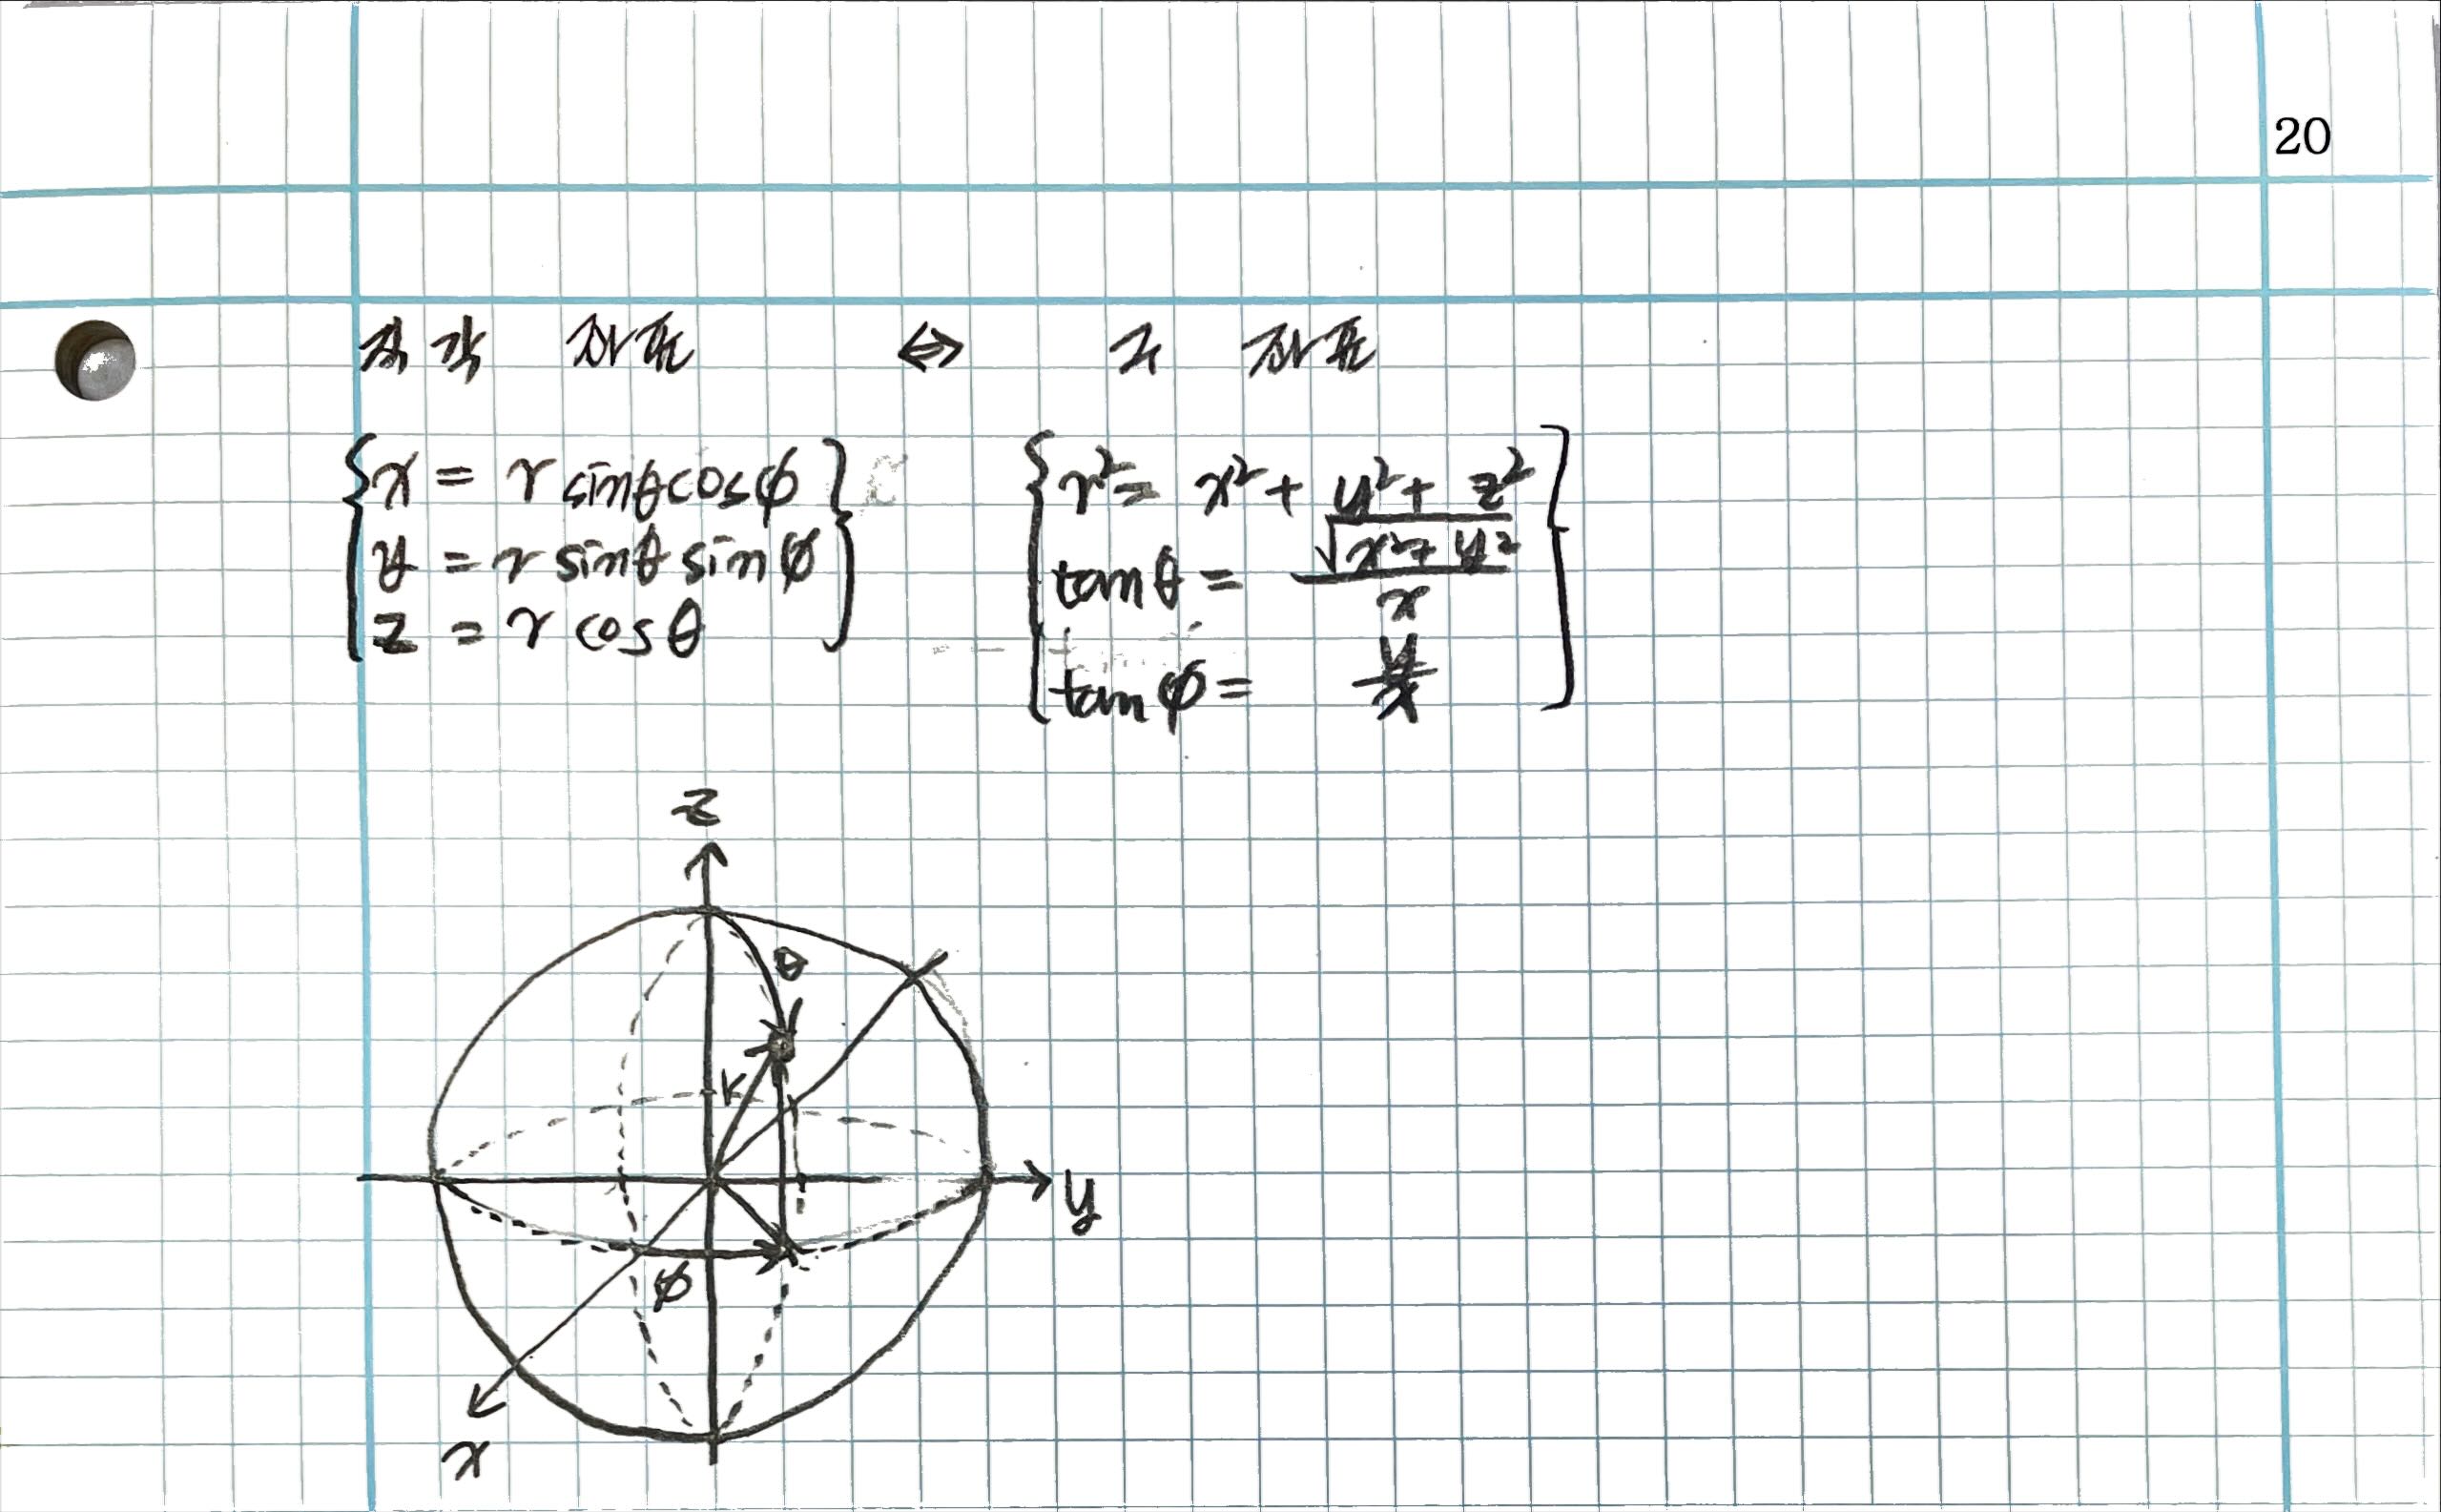 20
직각 좌표 ⇔ 구 좌표
x = r sinθcosϕ
y = r sinθ sinϕ
z = r cosθ
r² = x² + y² + z²
tanθ = √(x²+y²) / x
tanϕ = y/x
z
θ
r
y
ϕ
x